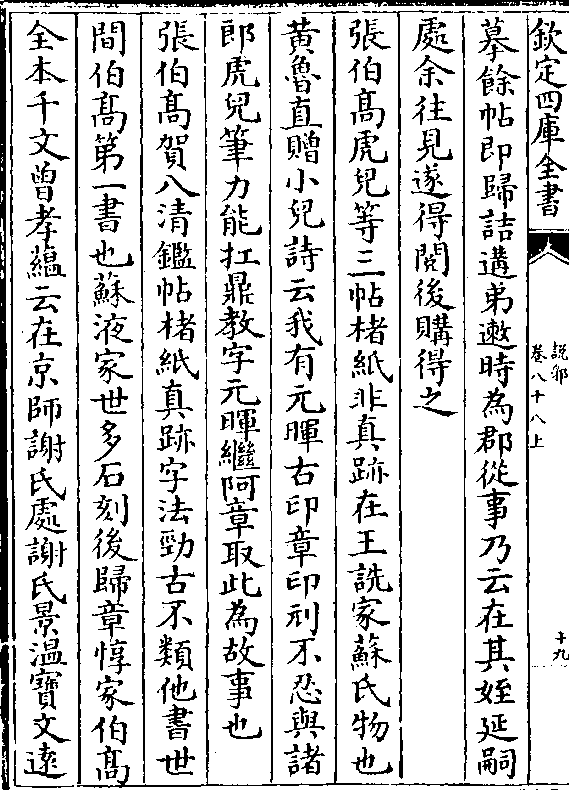 欽定四庫全書
說郛
卷八十八上
十九
摹餘帖即歸詰遘弟遫時為郡從事乃云在其姪延嗣
處余往見遂得閱後購得之
張伯髙虎兒等三帖楮紙非真跡在王詵家蘇氏物也
黃魯直贈小兒詩云我有元暉古印章印刓不忍與諸
郎虎兒筆力能扛鼎教字元暉繼阿章取此為故事也
張伯髙賀八清鑑帖楮紙真跡字法勁古不類他書世
間伯髙第一書也蘇液家世多石刻後歸章惇家伯髙
全本千文曾孝藴云在京師謝氏處謝氏景溫寶文逺